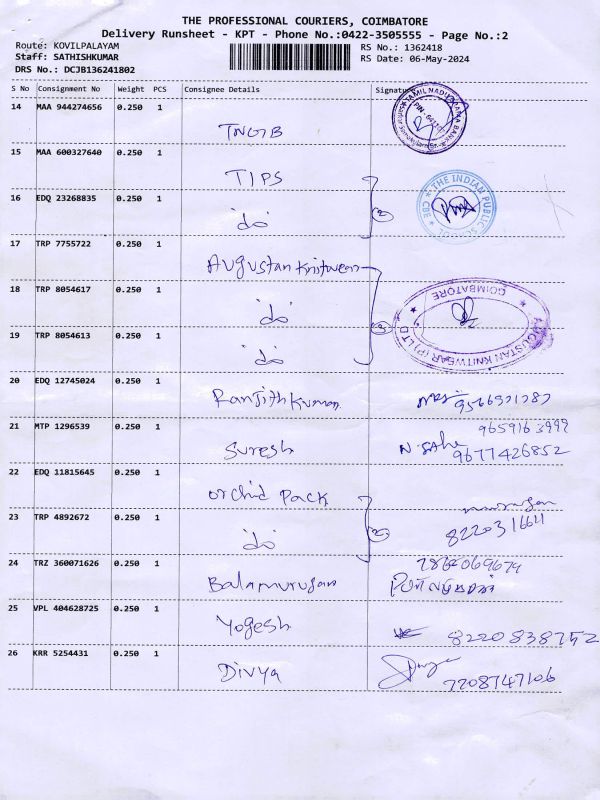 THE PROFESSIONAL COURIERS, COIMBATORE
Delivery Runsheet - KPT - Phone No.:0422-3505555 - Page No.:2
Route: KOVILPALAYAM RS No.: 1362418
Staff: SATHISHKUMAR RS Date: 06-May-2024
DRS No.: DCJB136241802
S No Consignment No Weight PCS Consignee Details Signature
14 MAA 944274656 0.250 1
TNGB
15 MAA 600327640 0.250 1
TIPS
THE INDIAN PUBLIC
CBE
16 EDQ 23268835 0.250 1
"do" 2
17 TRP 7755722 0.250 1
Augustan Knitwear
18 TRP 8054617 0.250 1
"do" 3
AUGUSTAN KNITWEAR (P) LTD
COIMBATORE
19 TRP 8054613 0.250 1
"do"
20 EDQ 12745024 0.250 1
Ranjithkumar
21 MTP 1296539 0.250 1
Suresh
9677426852
22 EDQ 11815645 0.250 1
Orchid Pack
murugan
23 TRP 4892672 0.250 1
"do" 2
24 TRZ 360071626 0.250 1
Balamurugan
25 VPL 404628725 0.250 1
Yogesh 8220838752
26 KRR 5254431 0.250 1
Divya
7208747106